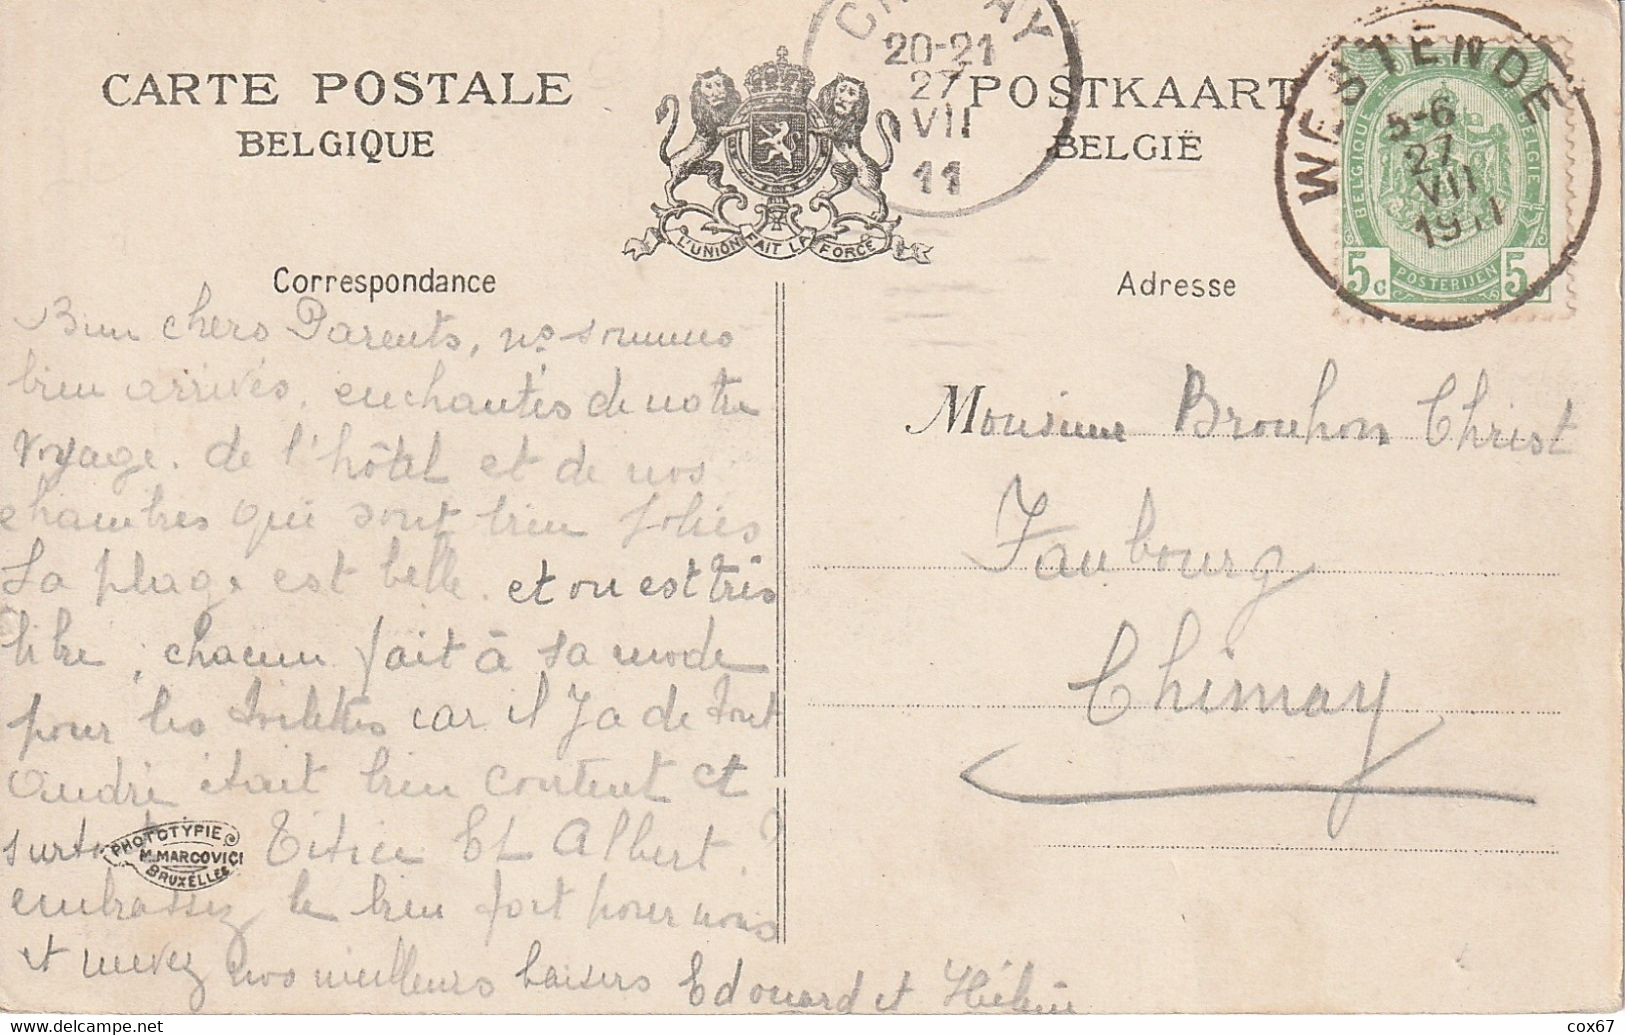 CARTE POSTALE
BELGIQUE
POSTKAART
BELGIË
L'UNION FAIT LA FORCE
20-21
27
VII
11
WESTENDE
5-6
27
VII
1911
BELGIQUE BELGIË
5c POSTERIJEN 5c
Correspondance
Adresse
Bien chers Parents, ns. sommes
bien arrivés, enchantés de notre
voyage. de l'hôtel et de nos
chambres qui sont bien jolies
La plage est belle. et on est très
libre, chacun fait à sa mode
pour les toilettes car il y a de tout
André était bien content et
Et Albert ?
embrassez le bien fort pour nous
et recevez nos meilleurs baisers Edouard et
PHOTOTYPIE
M. MARCOVICI
BRUXELLES
Monsieur Brouhon Christ
Faubourg
Chimay
cox67